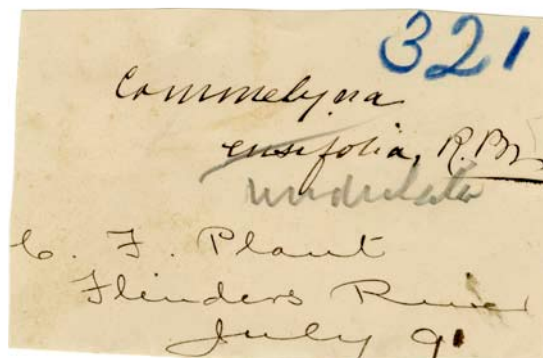 321
Commelyna
ensifolia, R. Br.
undulata
C. F. Plant
Flinders River
July 91